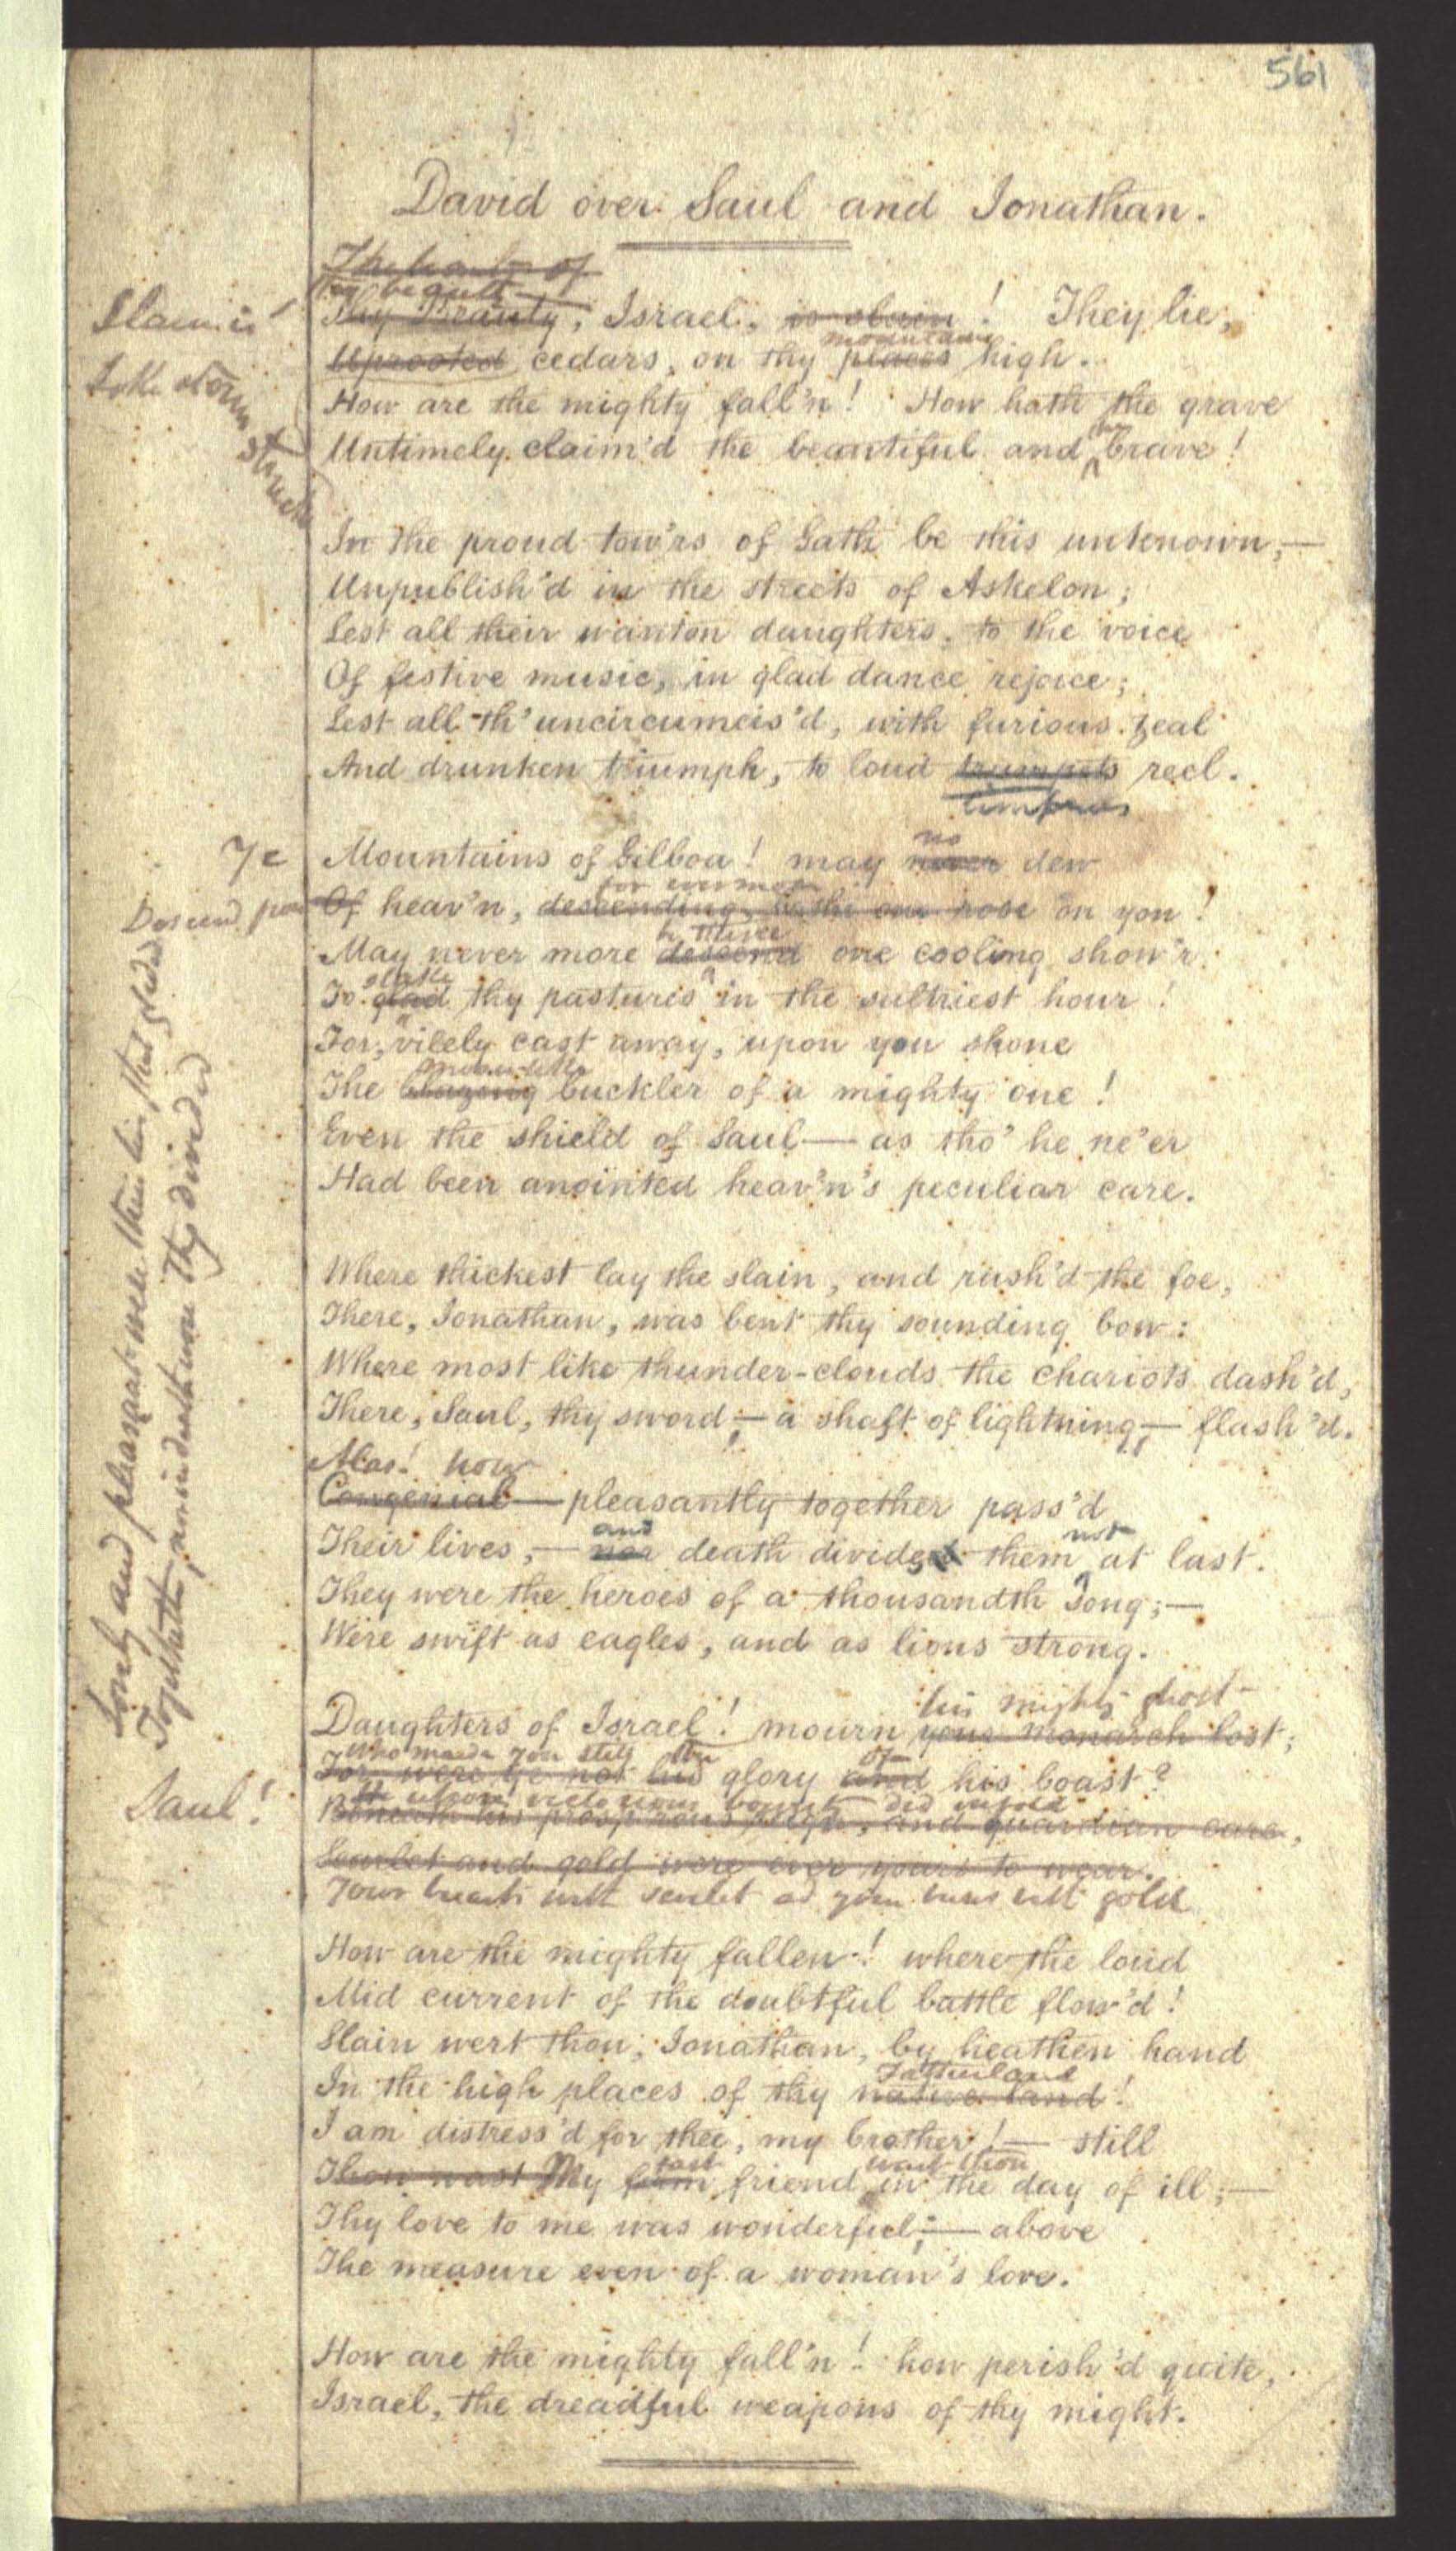 561
David over Saul and Jonathan.
The beauty of
Thy beauty
Slain is
Thy Beauty, Israel, is slain! They lie,
mountains
Like storm struck
Uprooted cedars, on thy places high.
How are the mighty fall'n! How hath the grave
the
Untimely claim'd the beautiful and brave!
In the proud tow'rs of Gath be this unknown,—
Unpublish'd in the streets of Askelon;
Lest all their wanton daughters, to the voice
Of festive music, in glad dance rejoice;
Lest all th' uncircumcis'd, with furious zeal
And drunken triumph, to loud trumpets reel.
timbrels
no
Ye
Mountains of Gilboa! may never dew
for evermore
Descend from
Of heav'n, descending, bathe one rose on you!
May never more descend one cooling show'r
slake
To glad thy pastures in the sultriest hour!
For, vilely cast away, upon you shone
The blazing buckler of a mighty one!
Even the shield of Saul— as tho' he ne'er
Had been anointed heav'n's peculiar care.
Where thickest lay the slain, and rush'd the foe,
There, Jonathan, was bent thy sounding bow:
Where most like thunder-clouds the chariots dash'd,
There, Saul, thy sword;— a shaft of lightning;— flash'd.
Alas! how
Congenial— pleasantly together pass'd
and not
Their lives,— nor death divides them at last.
They were the heroes of a thousandth Song;—
Were swift as eagles, and as lions strong.
Lovely and pleasant were their lives, that glided
Together, and in death were they divided
his mighty ghost
Daughters of Israel! mourn your monarch lost;
Who made you still the of
For were ye not his glory and his boast?
Saul!
did infold
Beneath his prosp'rous reign, and guardian care,
Scarlet and gold were ever yours to wear.
Your breasts with scarlet and your with gold
How are the mighty fallen! where the loud
Mid current of the doubtful battle flow'd!
Slain wert thou, Jonathan, by heathen hand
Fatherland
In the high places of thy native land!
I am distress'd for thee, my brother!— still
fast wast thou
Thou wast My firm friend in the day of ill;—
Thy love to me was wonderful;— above
The measure even of a woman's love.
How are the mighty fall'n! how perish'd quite,
Israel, the dreadful weapons of thy might.